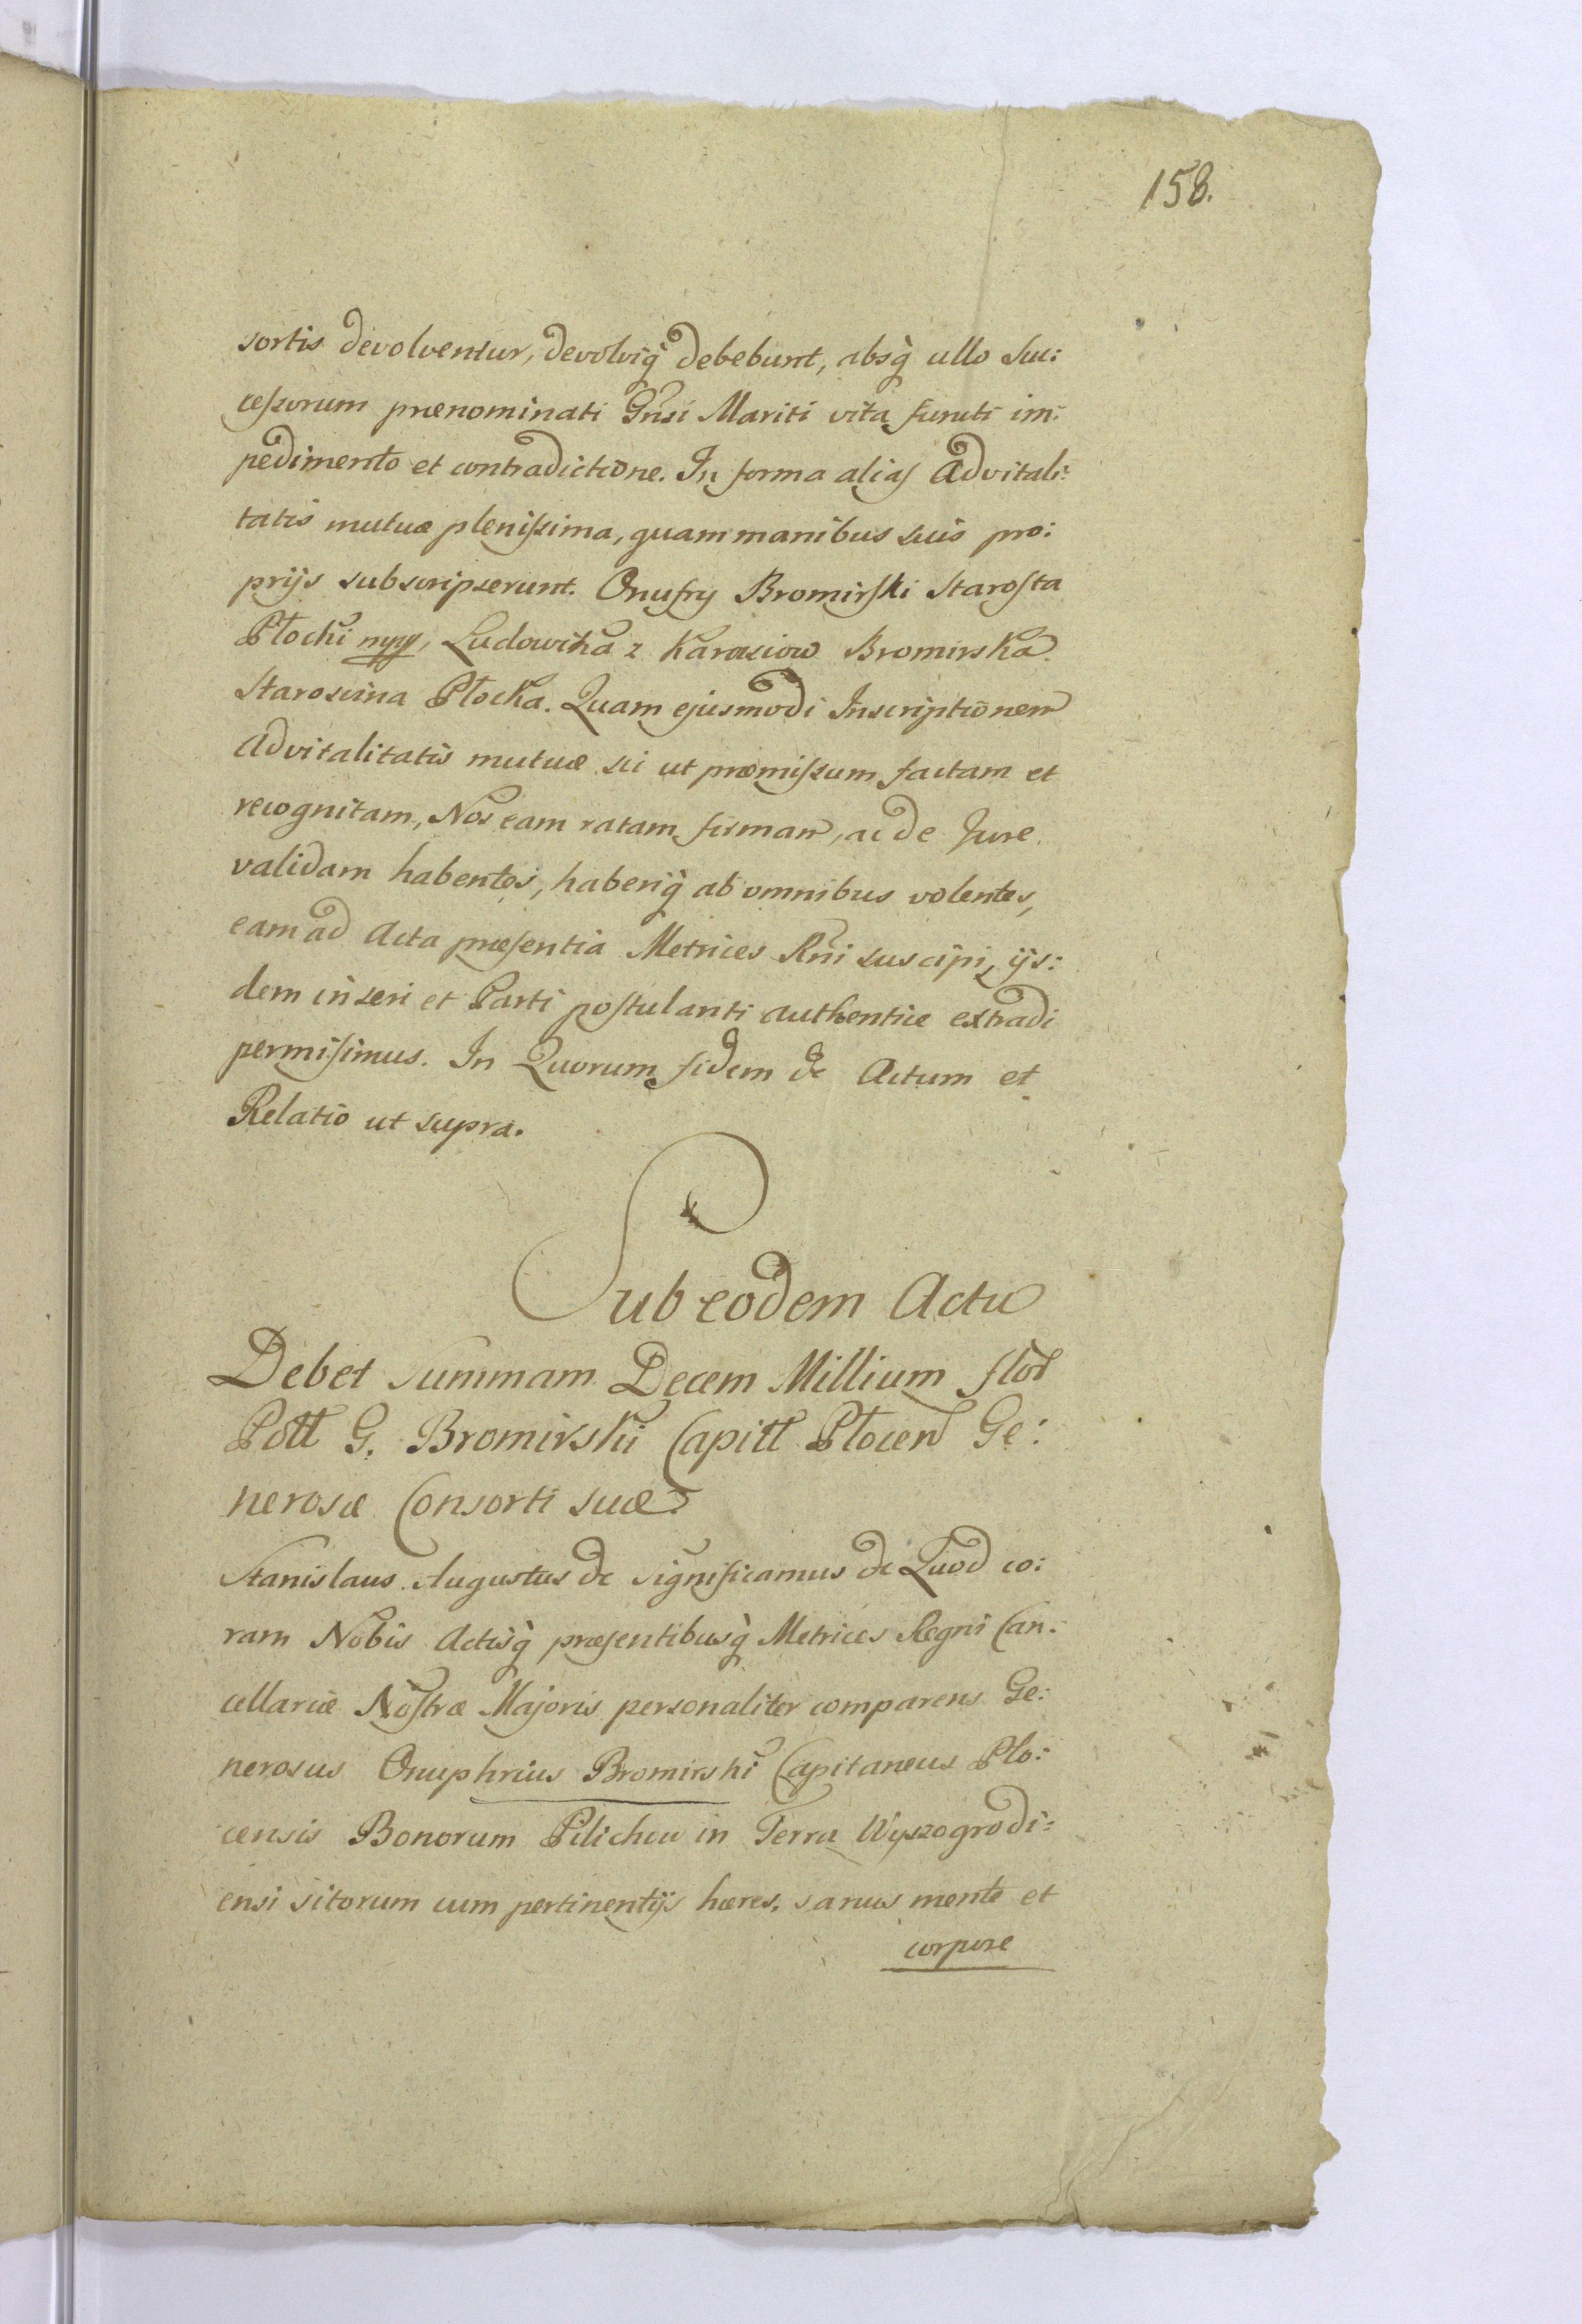 158.
sortis devolventur, devolviq̀ debebunt, absq̀ ullo Suc:
ceſsorum prænominati Gnsi Mariti vita functi im:
pedimento et contradictione. In forma alias Advitali:
tatis mutuæ pleniſsima, quam manibus suis pro:
prijs subscripserunt. Onufry Bromirſki Staroſta
Płocki mpp, Ludowika z Karasiow Bromirska
Starościna Płocka. Quam ejusmodi Inscriptionem
Advitalitatis mutuæ sic ut præmiſsum factam et
recognitam, Nos eam ratam, firmam, ac de Jure
validam habentes, haberiq̀ ab omnibus volentes,
eam ad Acta præſentia Metrices Rni suscipi, ijs:
dem inseri et Parti poſtulanti authentice extradi
permiſimus. In Quorum fidem &c Actum et
Relatio ut supra.
Sub eodem Actu
Debet summam Decem Millium flor
Poll G. Bromirski Capitt Płocen Ge:
nerosæ Consorti suæ.
Stanislaus Augustus &c significamus &c Quod co:
ram Nobis Actisq̀ præsentibusq̀ Metrices Regni Can:
cellariæ Noſtræ Majoris personaliter comparens Ge:
nerosus Onuphrius Bromirski Capitaneus Plo:
censis Bonorum Pilichow in Terra Wyszogrodi:
ensi sitorum cum pertinentijs hæres, sanus mente et
corpore